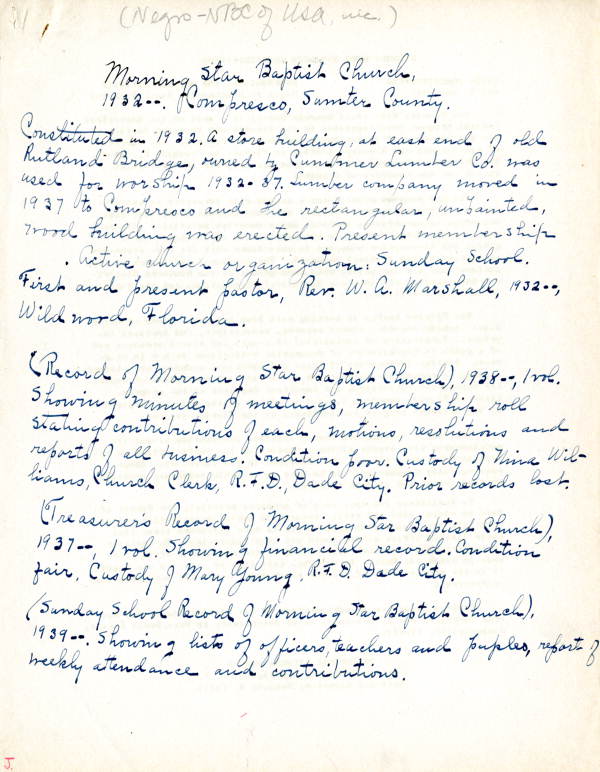 (Negro-NBC of USA, inc.)
Morning Star Baptist Church,
1932--. Compresco, Sumter County.
Constituted in 1932. A store building, at east end of old
Rutland Bridge, owned by Cummer Lumber Co. was
used for worship 1932-37. Lumber company moved in
1937 to Compresco and the rectangular, unpainted,
wood building was erected. Present membership
. Active church organization: Sunday School.
First and present pastor, Rev. W. A. Marshall, 1932--,
Wildwood, Florida.
(Record of Morning Star Baptist Church), 1938--, 1 vol.
Showing minutes of meetings, membership roll
stating contributions of each, motions, resolutions and
reports of all business. Condition poor. Custody of Nina Wil-
liams, Church Clerk, R.F.D., Dade City. Prior records lost.
(Treasurer's Record of Morning Star Baptist Church),
1937--, 1 vol. Showing financial record. Condition
fair. Custody of Mary Young, R.F.D. Dade City.
(Sunday School Record of Morning Star Baptist Church).
1939--. Showing lists of officers, teachers and puples, report of
weekly attendance and contributions.
J.